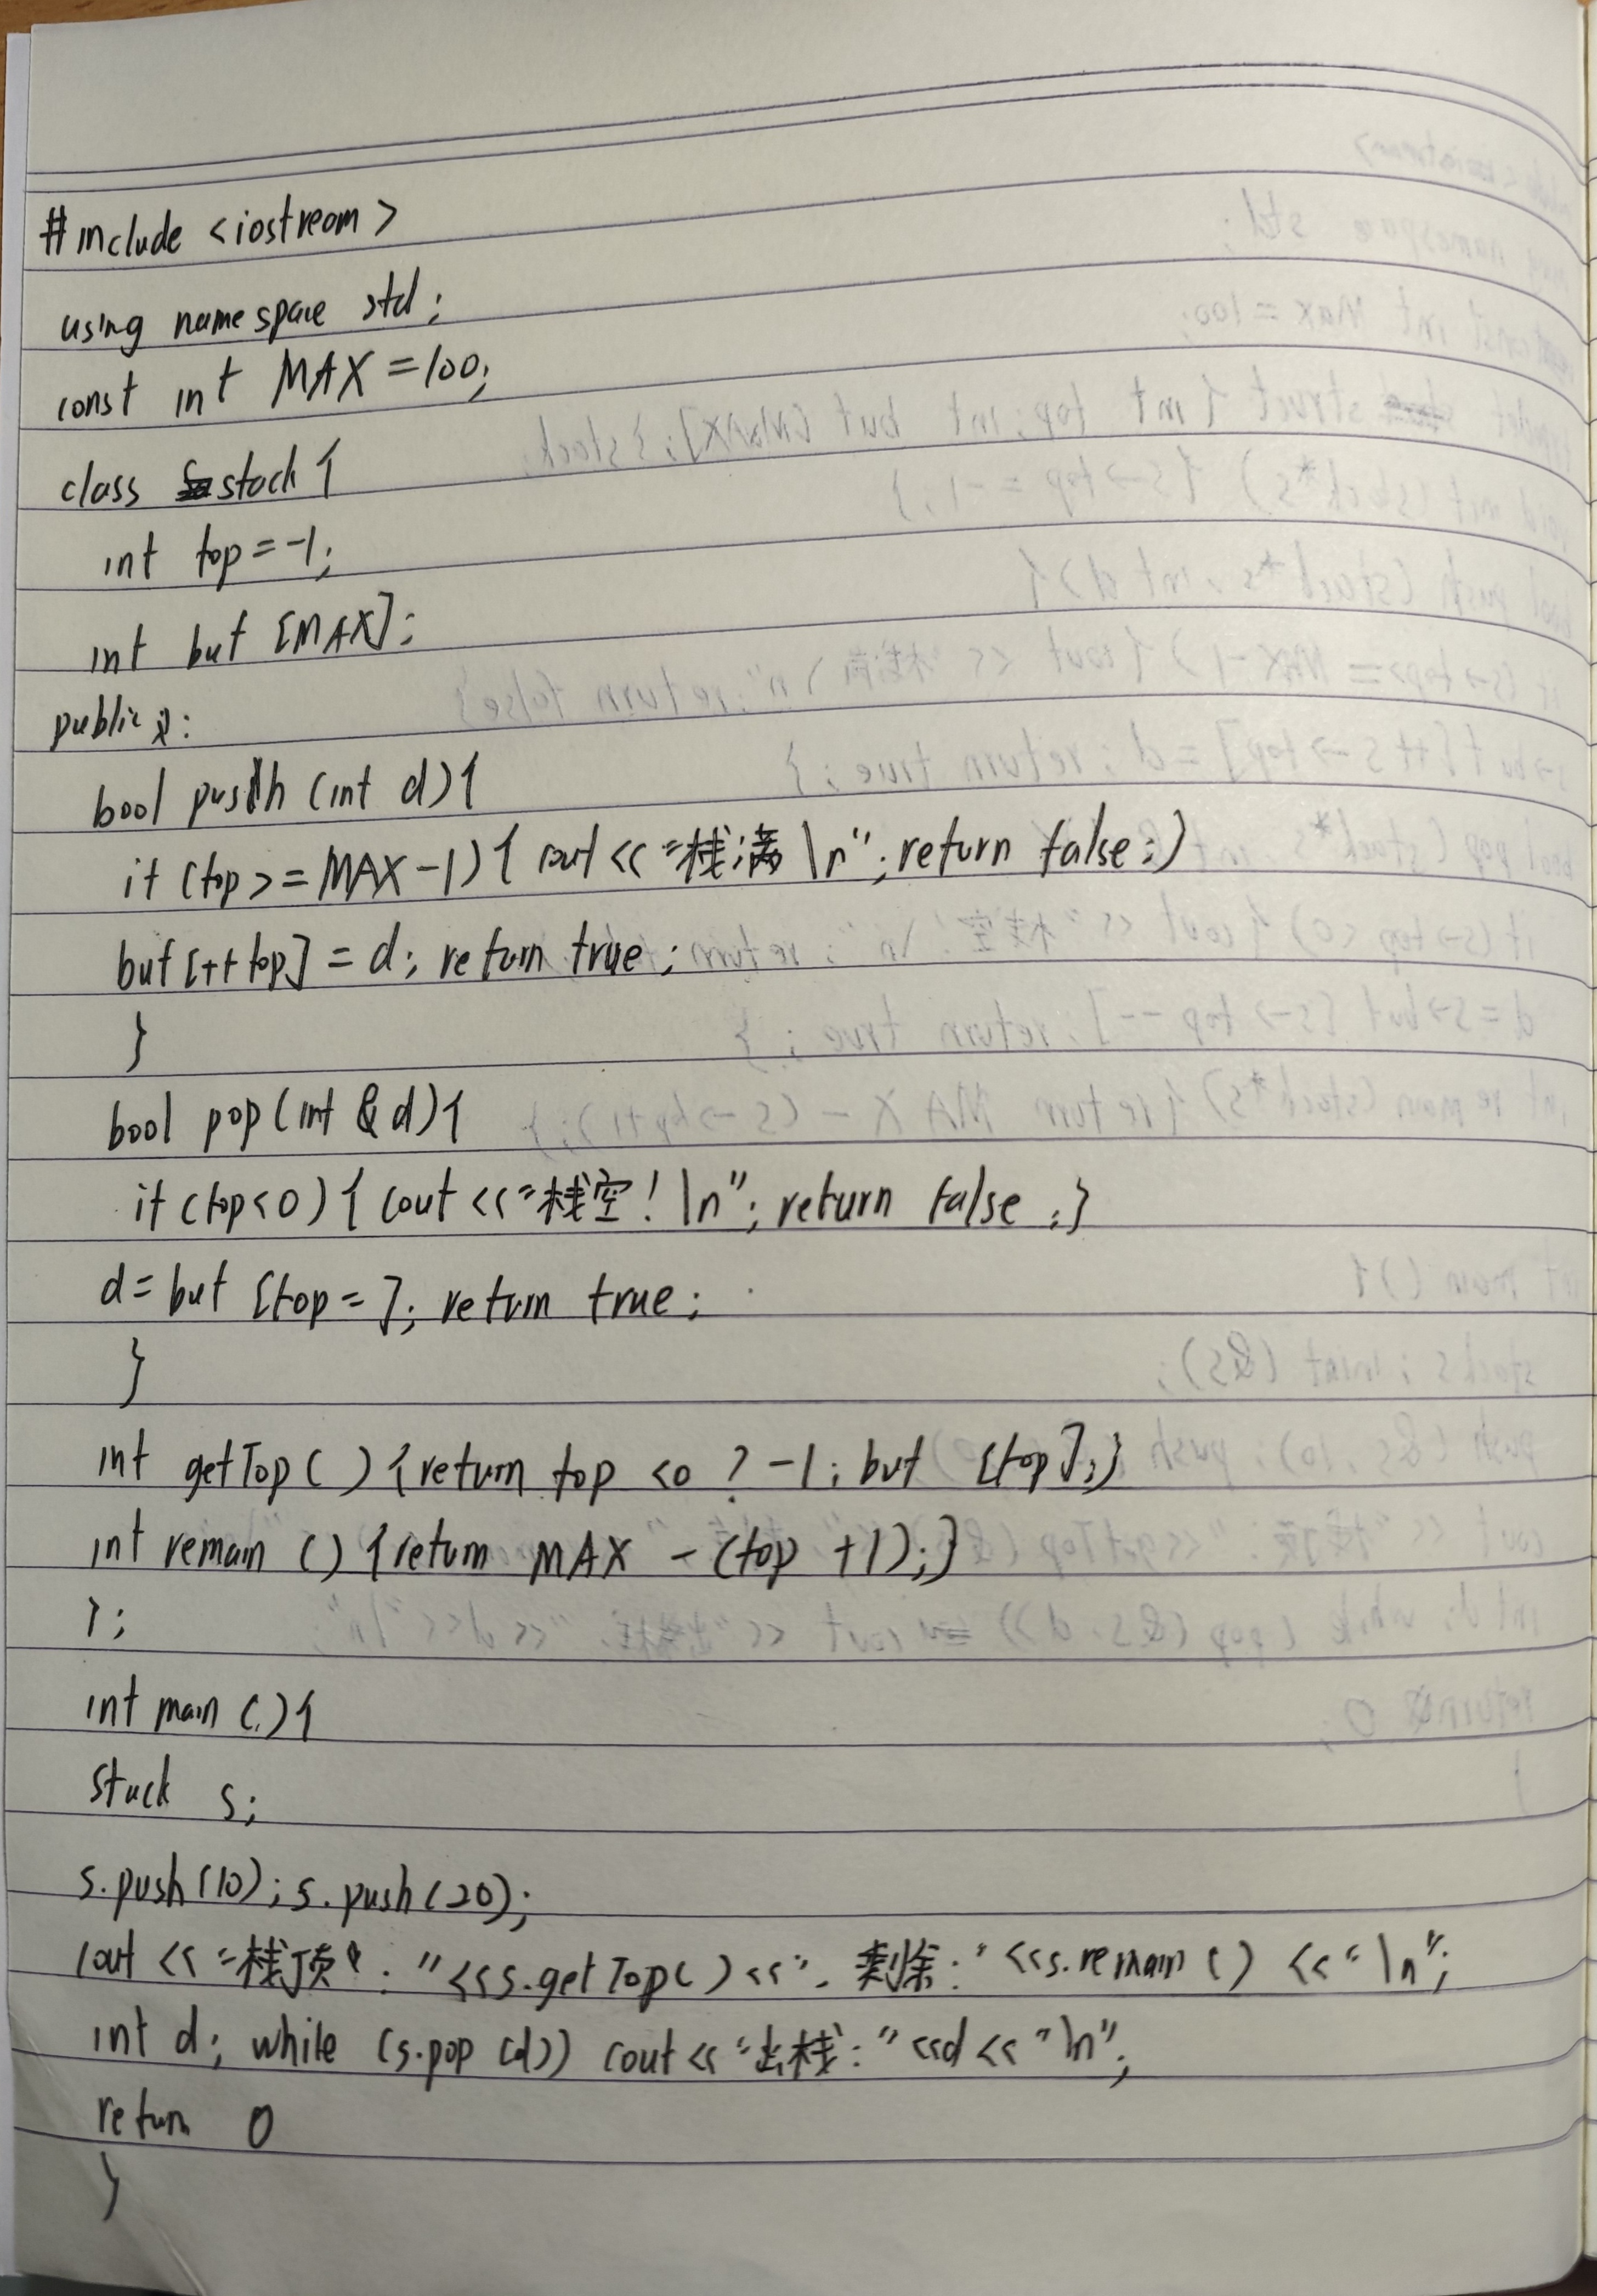 #include <iostream>
using namespace std;
const int MAX=100;
class stack{
int top=-1;
int buf [MAX];
public:
bool push (int d){
if (top>=MAX-1){ cout<<"栈满\n"; return false;}
buf[++top]=d; return true;
}
bool pop(int &d){
if(top<0){cout<<"栈空!\n"; return false;}
d=buf [top=]; return true;
}
int getTop( ){return top <0 ? -1; buf [top];}
int remain (){return MAX -(top +1);}
};
int main (){
stack s;
s.push(10);s.push(20);
cout <<"栈顶:"<<s.getTop()<<", 剩余:"<<s.remain() <<"\n";
int d; while (s.pop(d)) cout<<"出栈:"<<d<<"\n";
return 0
}